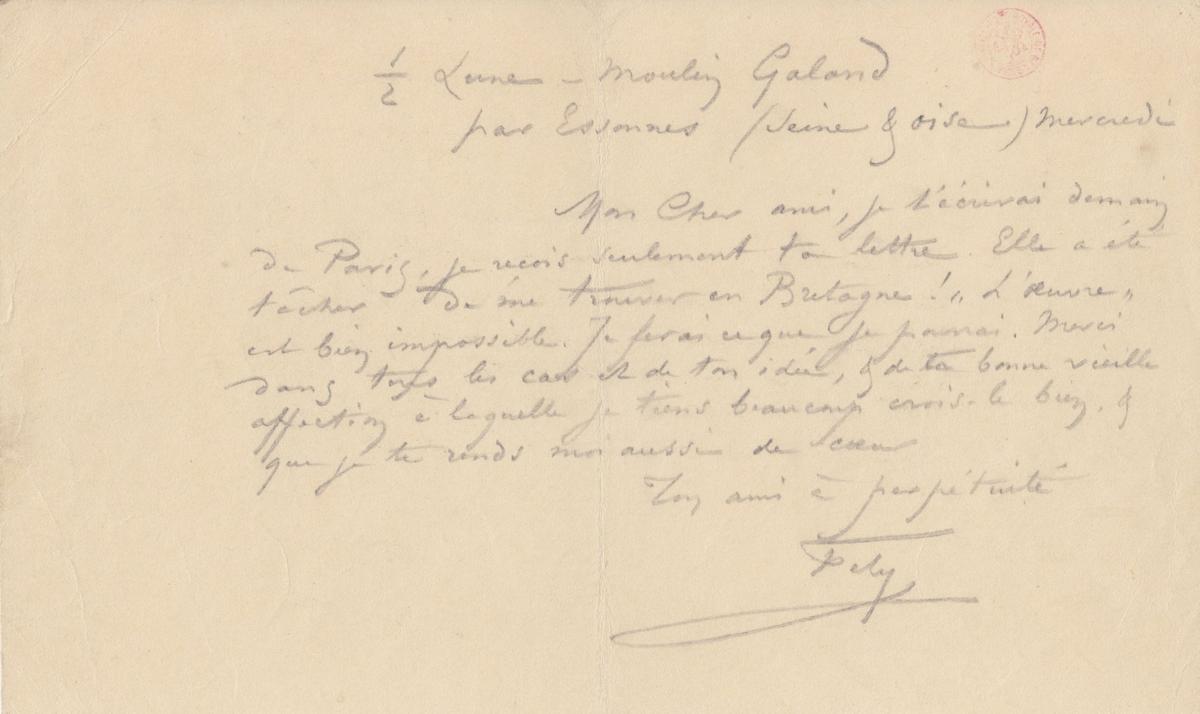 1/2 Lune – Moulin Galand
par Essonnes (Seine & oise) Mercredi
Mon Cher ami, je t'écrirai demain
de Paris, je reçois seulement ta lettre. Elle a été
tâcher de me trouver en Bretagne! „ L'œuvre „
est bien impossible. Je ferai ce que je pourrai. Merci
dans tous les cas et de ton idée, & de ta bonne vieille
affection à laquelle je tiens beaucoup crois-le bien, &
que je te rends moi aussi de cœur
Ton ami à perpétuité
Fély